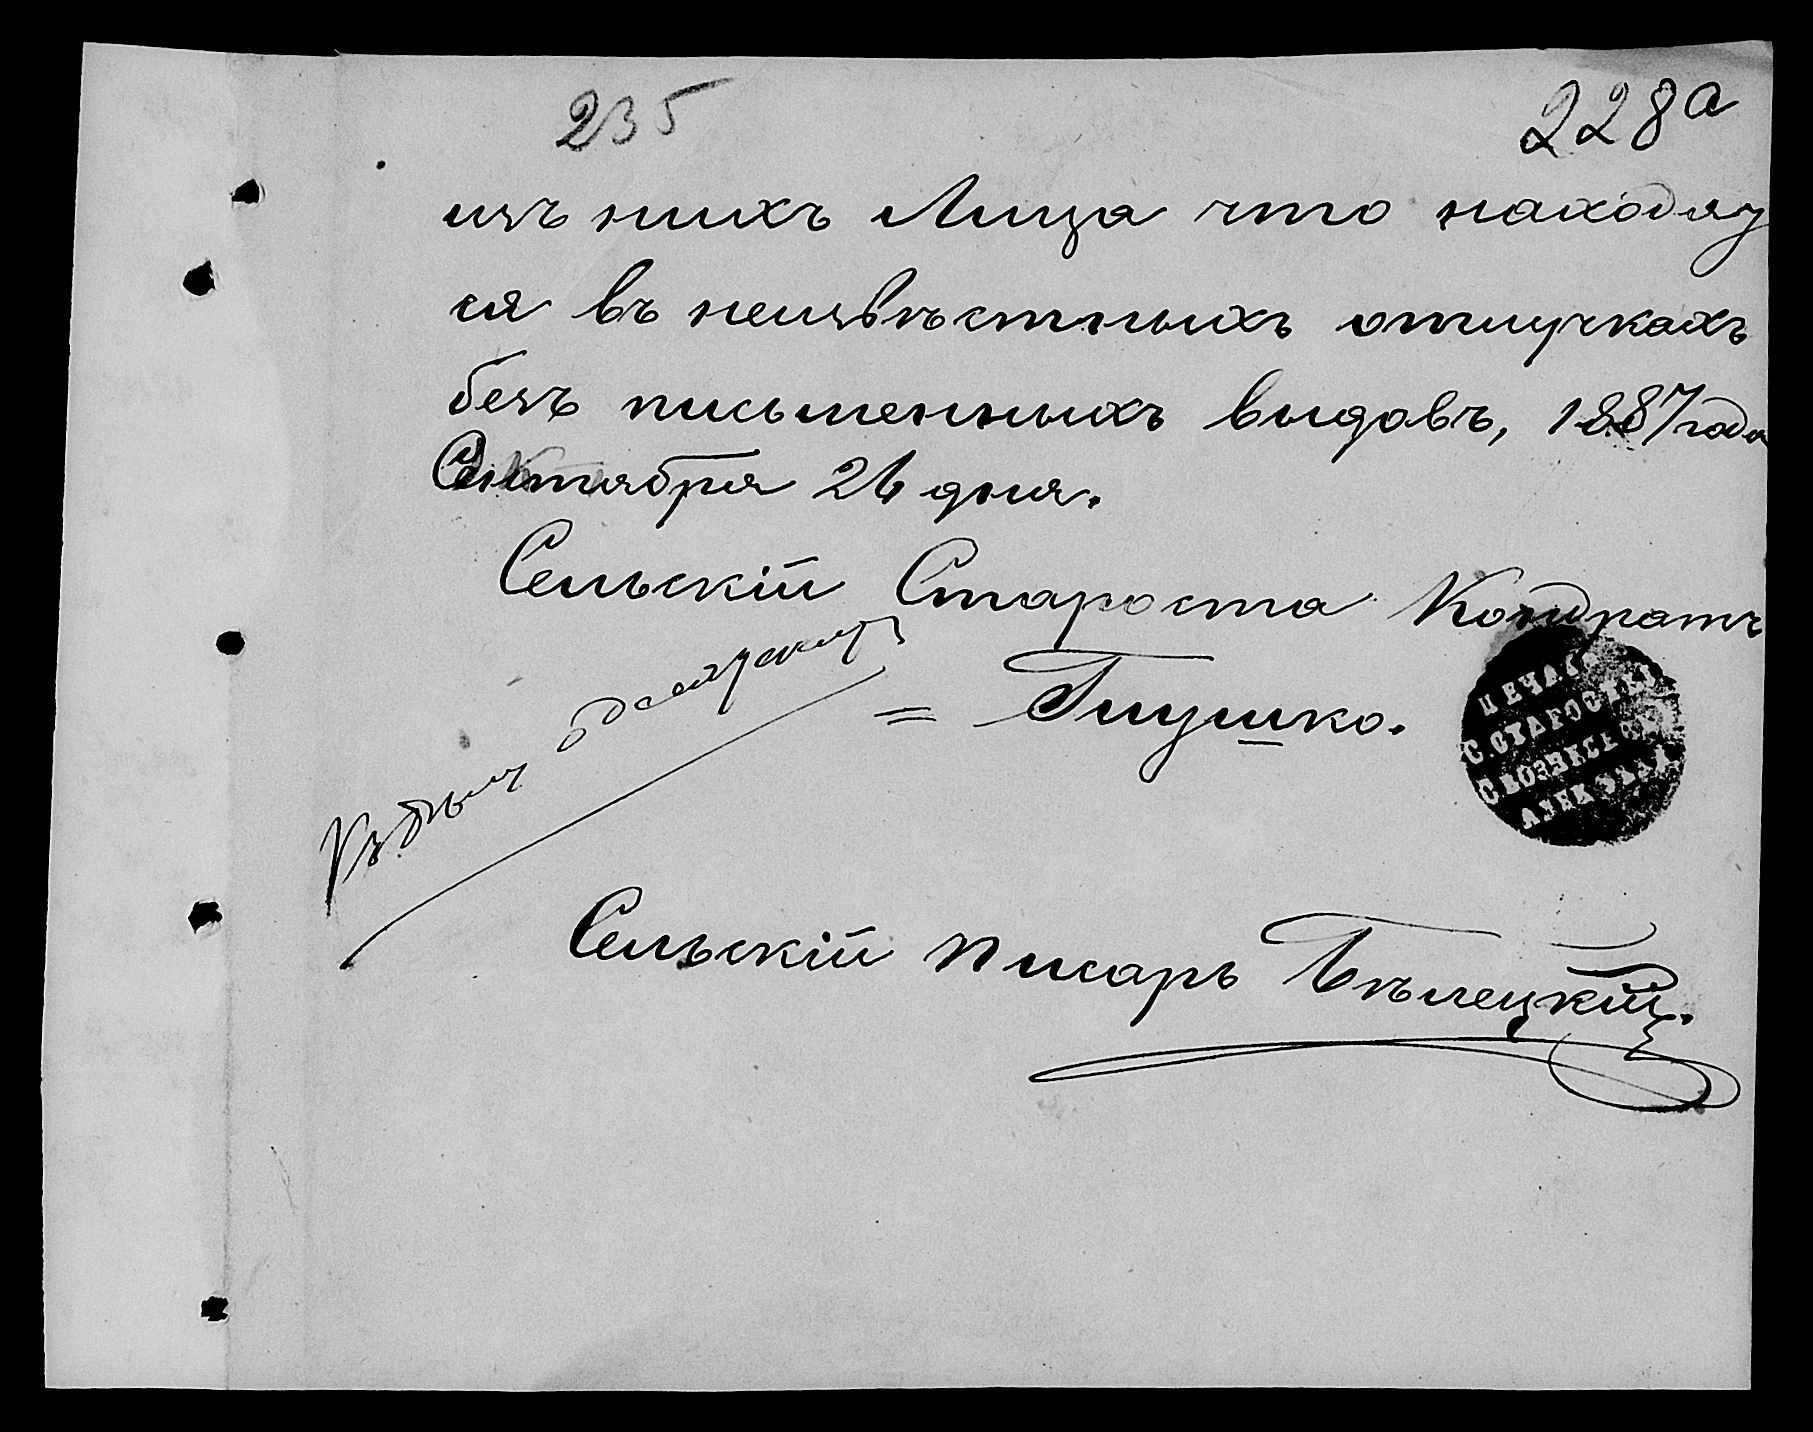 235
228а
изъ нихъ Лица что находят
ся въ неизвѣстныхъ отлучкахъ
безъ письменныхъ видовъ, 1887 года
Октября 26 дня.
Сельскій Староста Кондратъ
= Глушко.
Къ дѣлу о
ПЕЧАТ
С. СТАРОСТЫ
С ВОЗНЕСЕ
АЛЕК
Сельскій писарь Бѣлецкій.